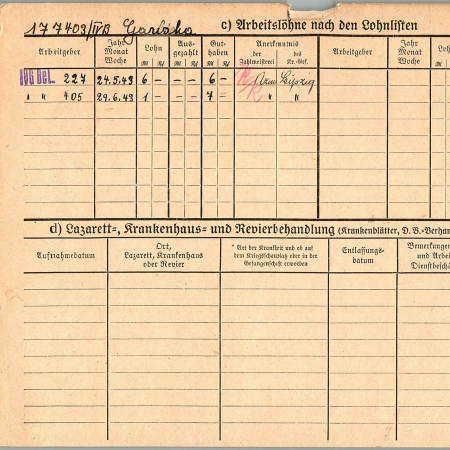 177403/IVB c) Arbeitslöhne nach den Lohnlisten
Arbeitgeber Jahr Monat Woche Lohn Aus-gezahlt Gut-haben Anerkenntnis der Zahlmeisterei des Kr.-Gef. Arbeitgeber Jahr Monat Woche Lohn
227 24.5.43 6 – – – 6 –
" " 405 29.6.43 1 – – – 7 = " "
d) Lazarett-, Krankenhaus- und Revierbehandlung (Krankenblätter, D. B.-Verhan
Aufnahmedatum Ort, Lazarett, Krankenhaus oder Revier * Art der Krankheit und ob auf dem Kriegsschauplatz oder in der Gefangenschaft erworben Entlassungs-datum Bemerkungen und Arbe Dienstbeschä